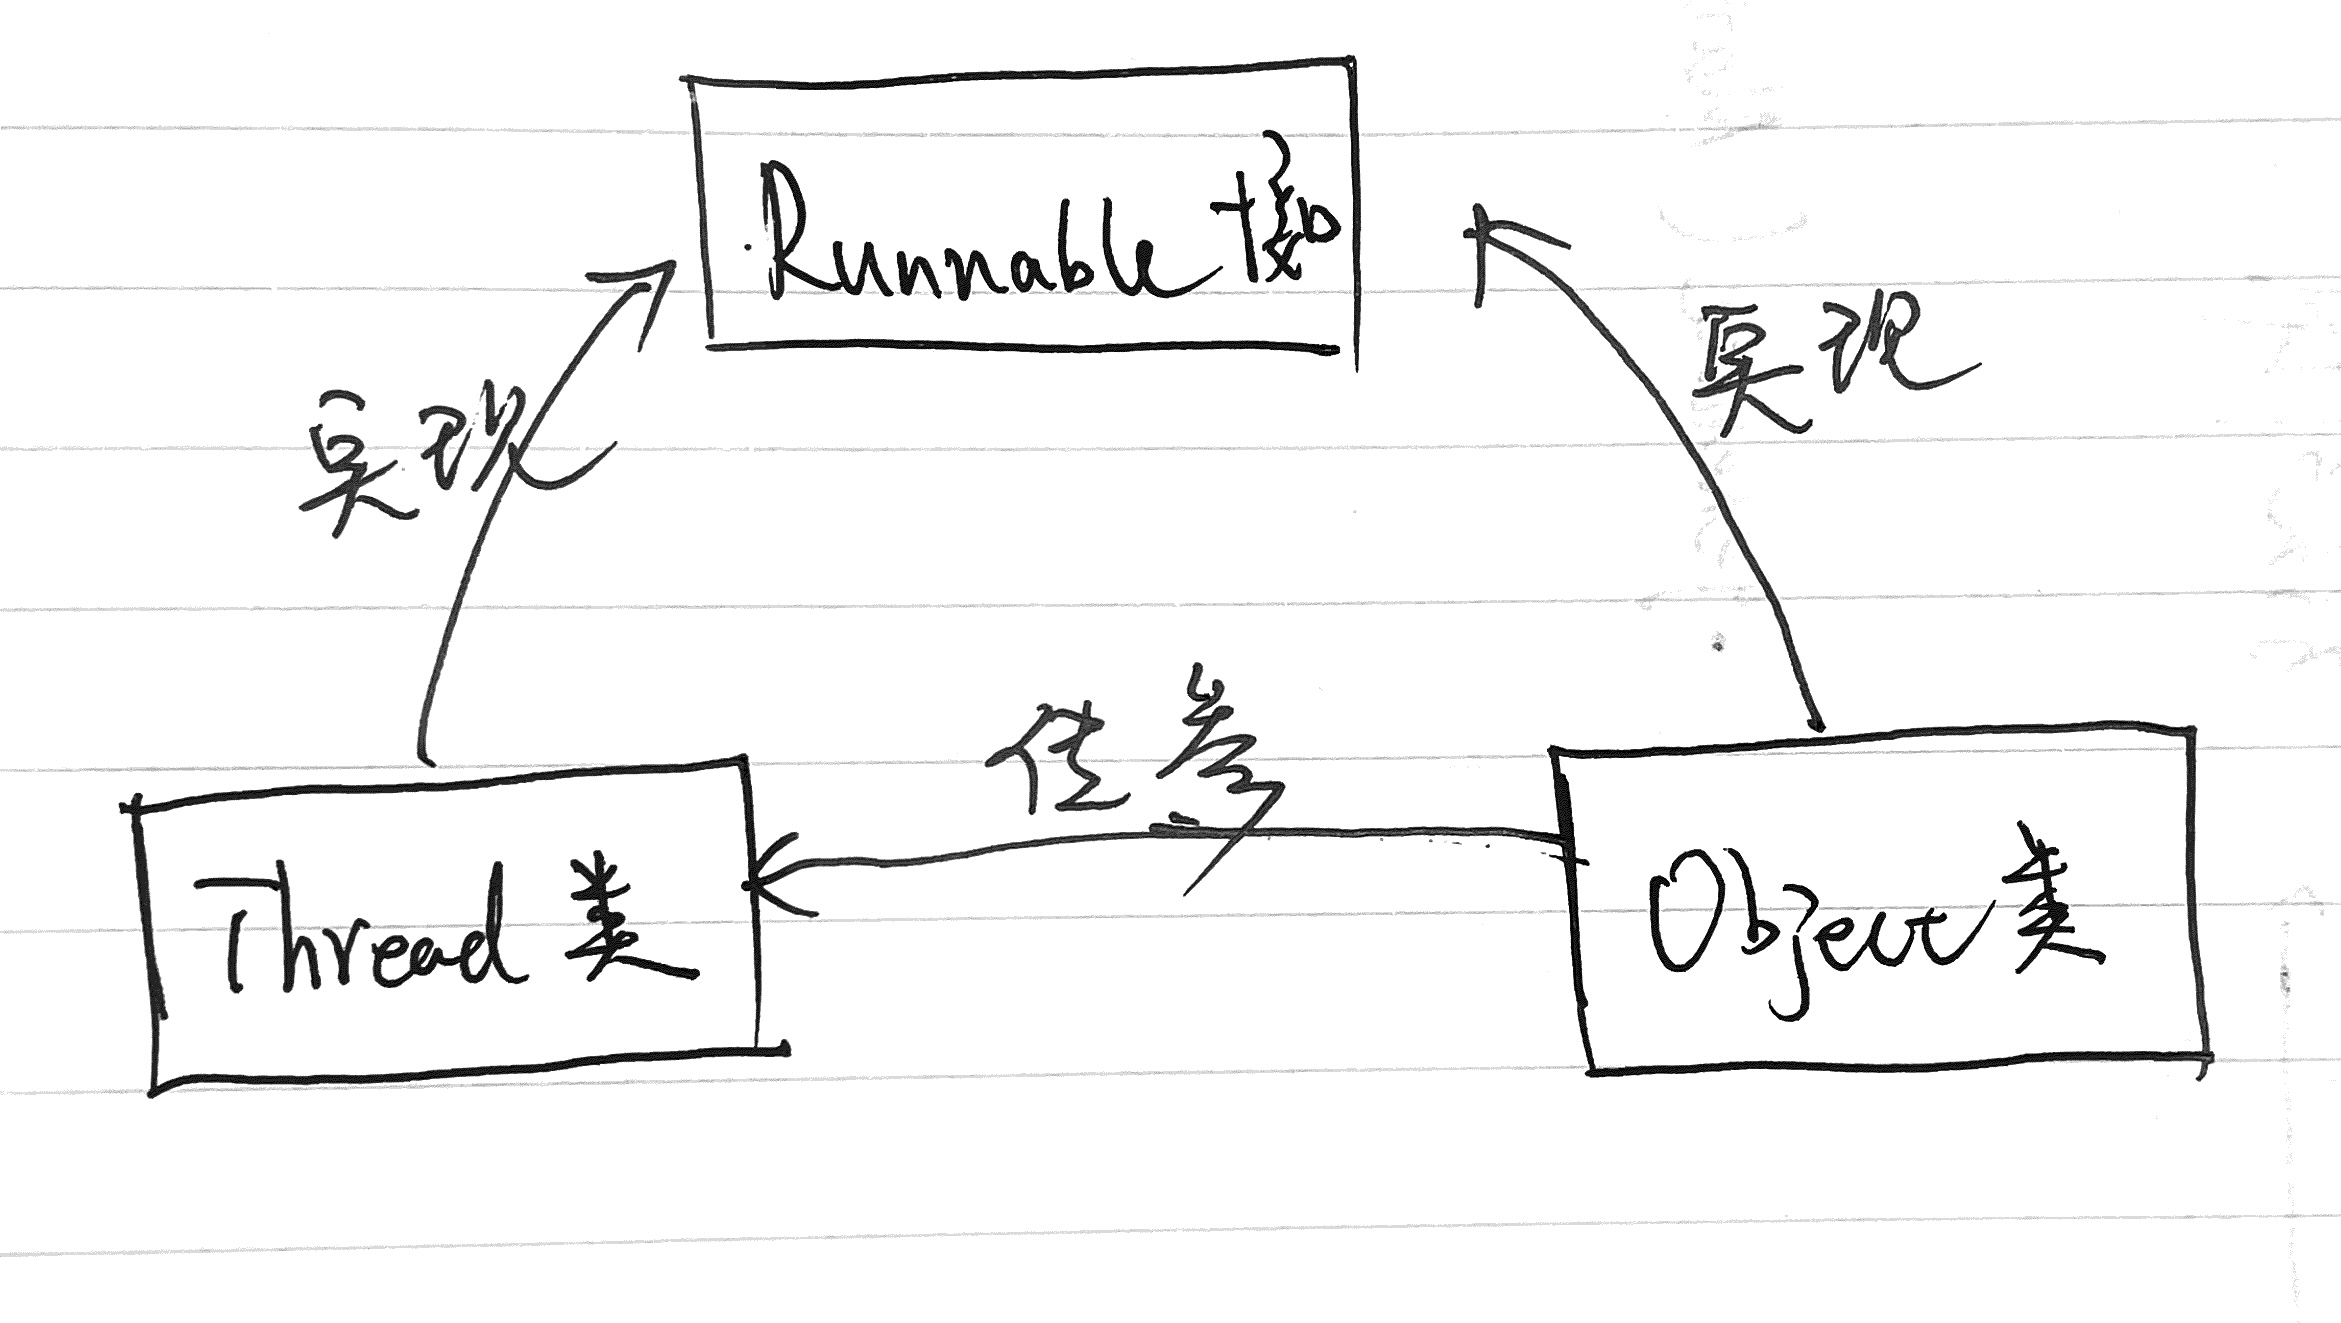 Runnable 接口
实现
实现
传参
Thread 类
Object 类